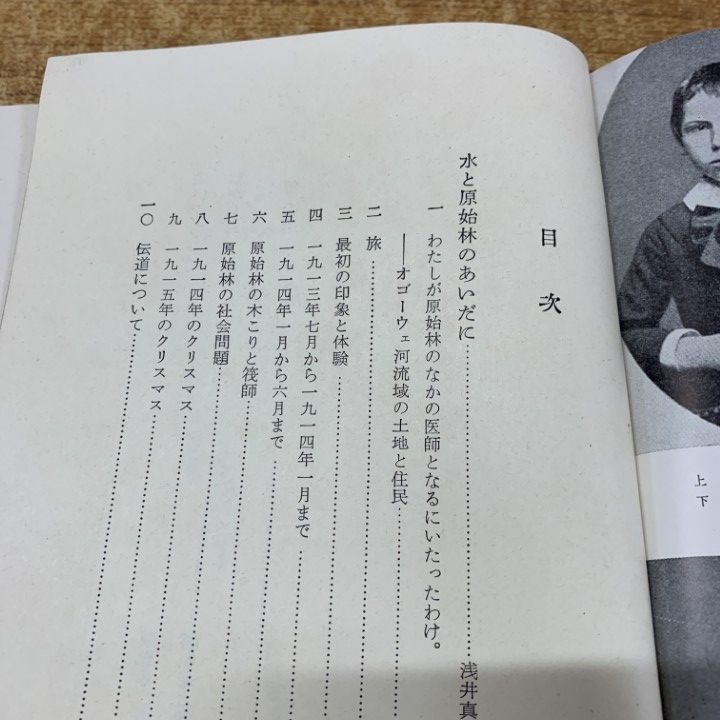 目次
水と原始林のあいだに……………………浅井真
一 わたしが原始林のなかの医師となるにいたったわけ。
――オゴーウェ河流域の土地と住民……………………
二 旅……………………
三 最初の印象と体験……………………
四 一九一三年七月から一九一四年一月まで……………………
五 一九一四年一月から六月まで……………………
六 原始林の木こりと筏師……………………
七 原始林の社会問題……………………
八 一九一四年のクリスマス……………………
九 一九一五年のクリスマス……………………
一〇 伝道について……………………
上
下